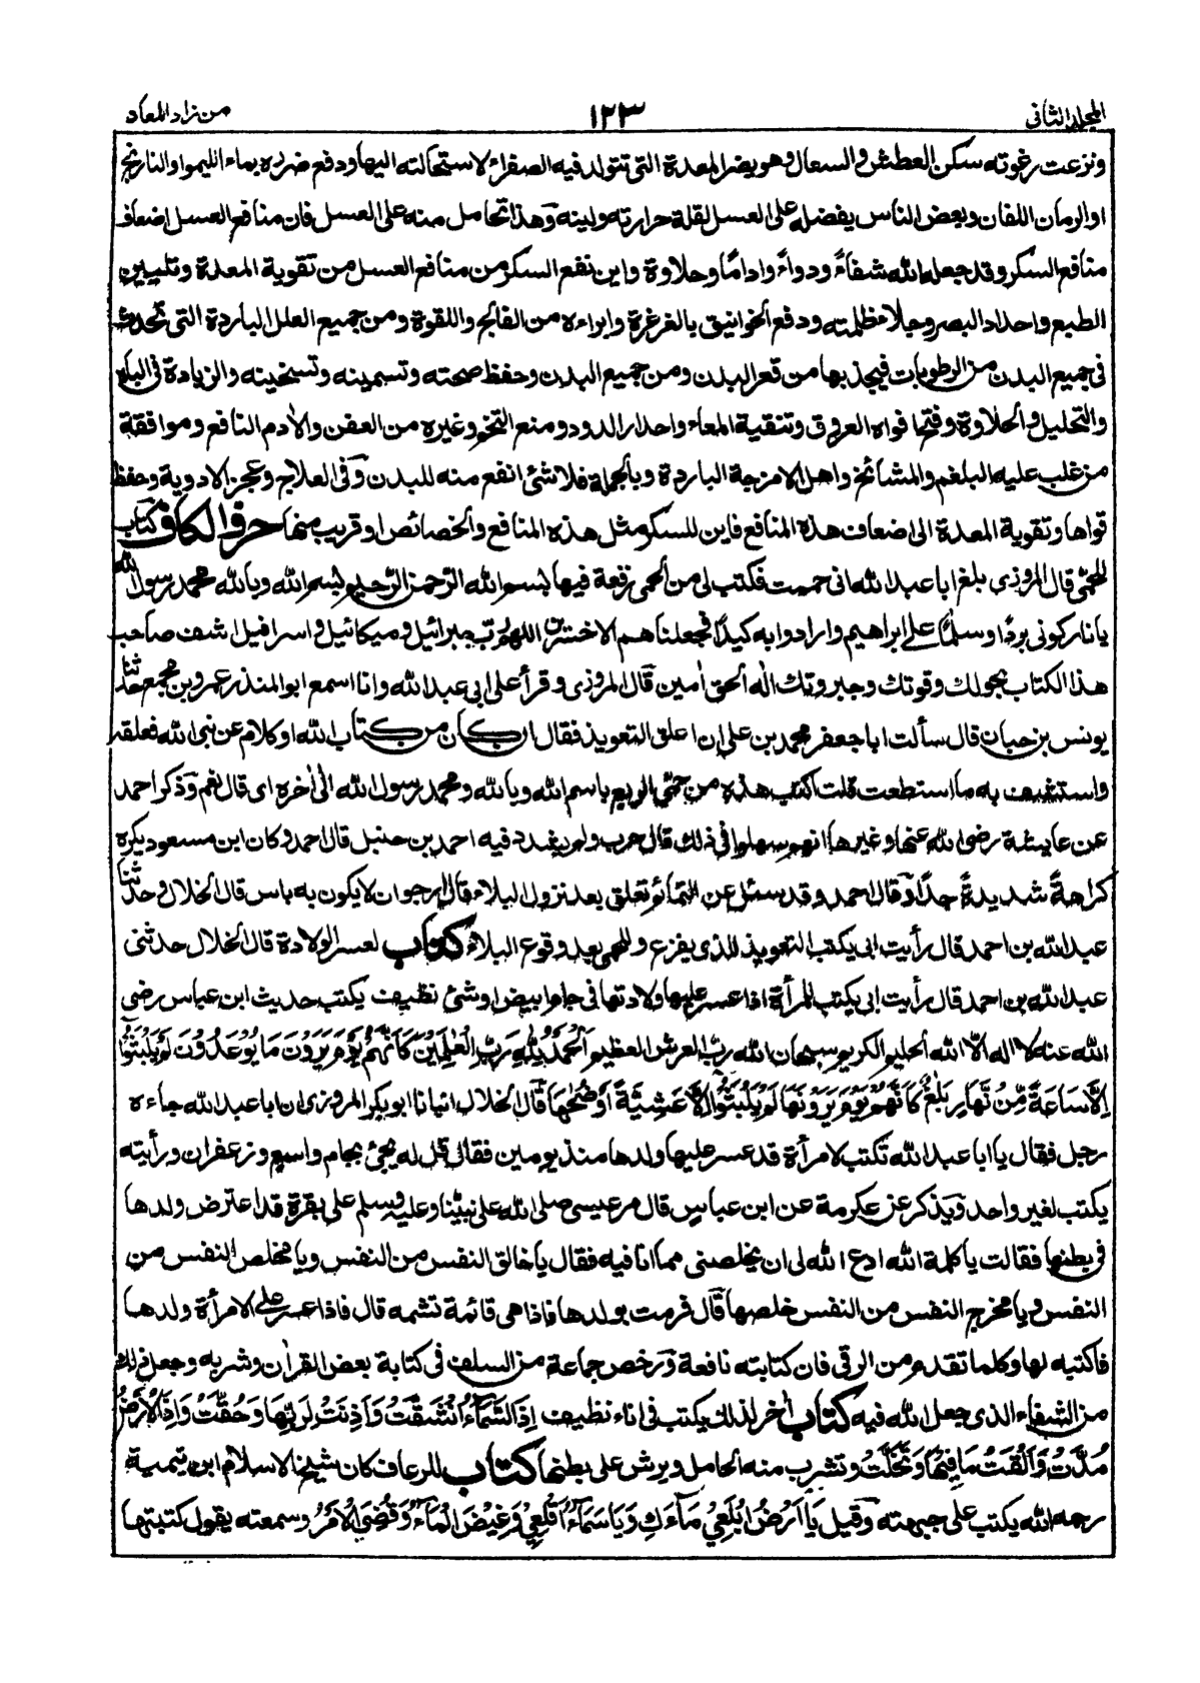 المجلد الثاني
١٢٣
من زاد المعاد
ونزعت رغوته سكن العطش والسعال وهو يضر المعدة التي تتولد فيه الصفراء لاستحالته اليها ودفع ضرره بماء الليموا والنارنج
او الرمان اللفان وبعض الناس يفضله على العسل لقلة حرارته ولينه وهذا تحامل منه على العسل فان منافع العسل اضعاف
منافع السكر وقد جعله الله شفاءً ودواءً واداماً وحلاوة واين نفع السكر من منافع العسل من تقوية المعدة وتليين
الطبع واحداد البصر وجلاء ظلمته ودفع الخوانيق بالغرغرة وابراءه من الفالج واللقوة ومن جميع العلل الباردة التي تحدث
في جميع البدن من الرطوبات فيجذبها من قعر البدن ومن جميع البدن وحفظ صحته وتسمينه وتسخينه والزيادة في الباه
والتحليل والحلاوة وفتح افواه العروق وتنقية المعاء واحدار الدود ومنع التخم وغيره من العفن والأدم النافع وموافقة
من غلب عليه البلغم والمشائخ واهل الامزجة الباردة وبالجملة فلا شئ انفع منه للبدن وفي العلاج وعجز الادوية وحفظ
قواها وتقوية المعدة الى اضعاف هذه المنافع فاين للسكر مثل هذه المنافع والخصائص او قريب منها حرف الكاف كتاب
للحمّى قال المروزي بلغ ابا عبد الله اني حممت فكتب لي من الحمى رقعة فيها بسم الله الرّحمن الرّحيم بسم الله وبالله محمد رسول الله
يا نار كوني بردًا وسلامًا على ابراهيم وارادوا به كيدًا فجعلناهم الاخسرين اللهم رب جبرائيل وميكائيل واسرافيل اشف صاحب
هذا الكتاب بحولك وقوتك وجبروتك اله الحق امين قال المروزي وقرأ على ابي عبد الله وانا اسمع ابو المنذر عمرو بن مجمع حدثنا
يونس بن حبان قال سألت ابا جعفر محمد بن علي ان اعلق التعويذ فقال ان كان من كتاب الله او كلام عن نبي الله فعلقه
واستشف به ما استطعت قلت اكتب هذه من حمّى الربع باسم الله وبالله ومحمد رسول الله الى أخره اى قال نعم وذكر احمد
عن عايشة رضي الله عنها وغيرها انهم سهلوا في ذلك قال حرب ولم يشدد فيه احمد بن حنبل قال احمد وكان ابن مسعود يكره
كراهةً شديدةً جدًا وقال احمد وقد سئل عن التمائم تعلق بعد نزول البلاء قال ارجو ان لا يكون به باس قال الخلال وحدثنا
عبد الله بن احمد قال رأيت ابي يكتب التعويذ للذي يفزع وللحمى بعد وقوع البلاء كتاب لعسر الولادة قال الخلال حدثني
عبد الله بن احمد قال رأيت ابي يكتب للمرأة اذا عسر عليها ولادتها في جام ابيض او شئ نظيف يكتب حديث ابن عباس رضي
الله عنه لا اله الّا الله الحليم الكريم سبحان الله ربّ العرش العظيم اَلْحَمْدُ لِلّٰهِ رَبِّ الْعٰلَمِيْنَ كَاَنَّهُمْ يَوْمَ يَرَوْنَ مَا يُوْعَدُوْنَ لَمْ يَلْبَثُوْا
اِلَّا سَاعَةً مِّنْ نَّهَارٍ بَلٰغٌ كَاَنَّهُمْ يَوْمَ يَرَوْنَهَا لَمْ يَلْبَثُوْا اِلَّا عَشِيَّةً اَوْ ضُحٰهَا قال الخلال انبانا ابو بكر المروزي ان ابا عبد الله جاءه
رجل فقال يا ابا عبد الله تكتب لامرأة قد عسر عليها ولدها منذ يومين فقال قل له يجئ بجام واسع وزعفران ورأيته
يكتب لغير واحد ويذكر عن عكرمة عن ابن عباس قال مر عيسى صلى الله على نبيّنا وعليه وسلم على بقرة قد اعترض ولدها
في بطنها فقالت يا كلمة الله ادع الله لي ان يخلصني مما انا فيه فقال يا خالق النفس من النفس ويا مخلص النفس من
النفس ويا مخرج النفس من النفس خلصها قال فرمت بولدها فاذا هي قائمة تشمه قال فاذا عسر على الامرأة ولدها
فاكتبه لها وكلما تقدم من الرقى فان كتابته نافعة ورخص جماعة من السلف في كتابة بعض القرأن وشربه وجعل ذلك
من الشفاء الذي جعل الله فيه كتاب أخر لذلك يكتب في اناء نظيف اِذَا السَّمَآءُ انْشَقَّتْ وَاَذِنَتْ لِرَبِّهَا وَحُقَّتْ وَاِذَا الْاَرْضُ
مُدَّتْ وَاَلْقَتْ مَا فِيْهَا وَتَخَلَّتْ وتشرب منه الحامل ويرش على بطنها كتاب للرعاف كان شيخ الاسلام ابن تيمية
رحمه الله يكتب على جبهته وقيل يَا اَرْضُ ابْلَعِيْ مَآءَكِ وَيَا سَمَآءُ اَقْلِعِيْ وَغِيْضَ الْمَآءُ وَقُضِيَ الْاَمْرُ وسمعته يقول كتبتها